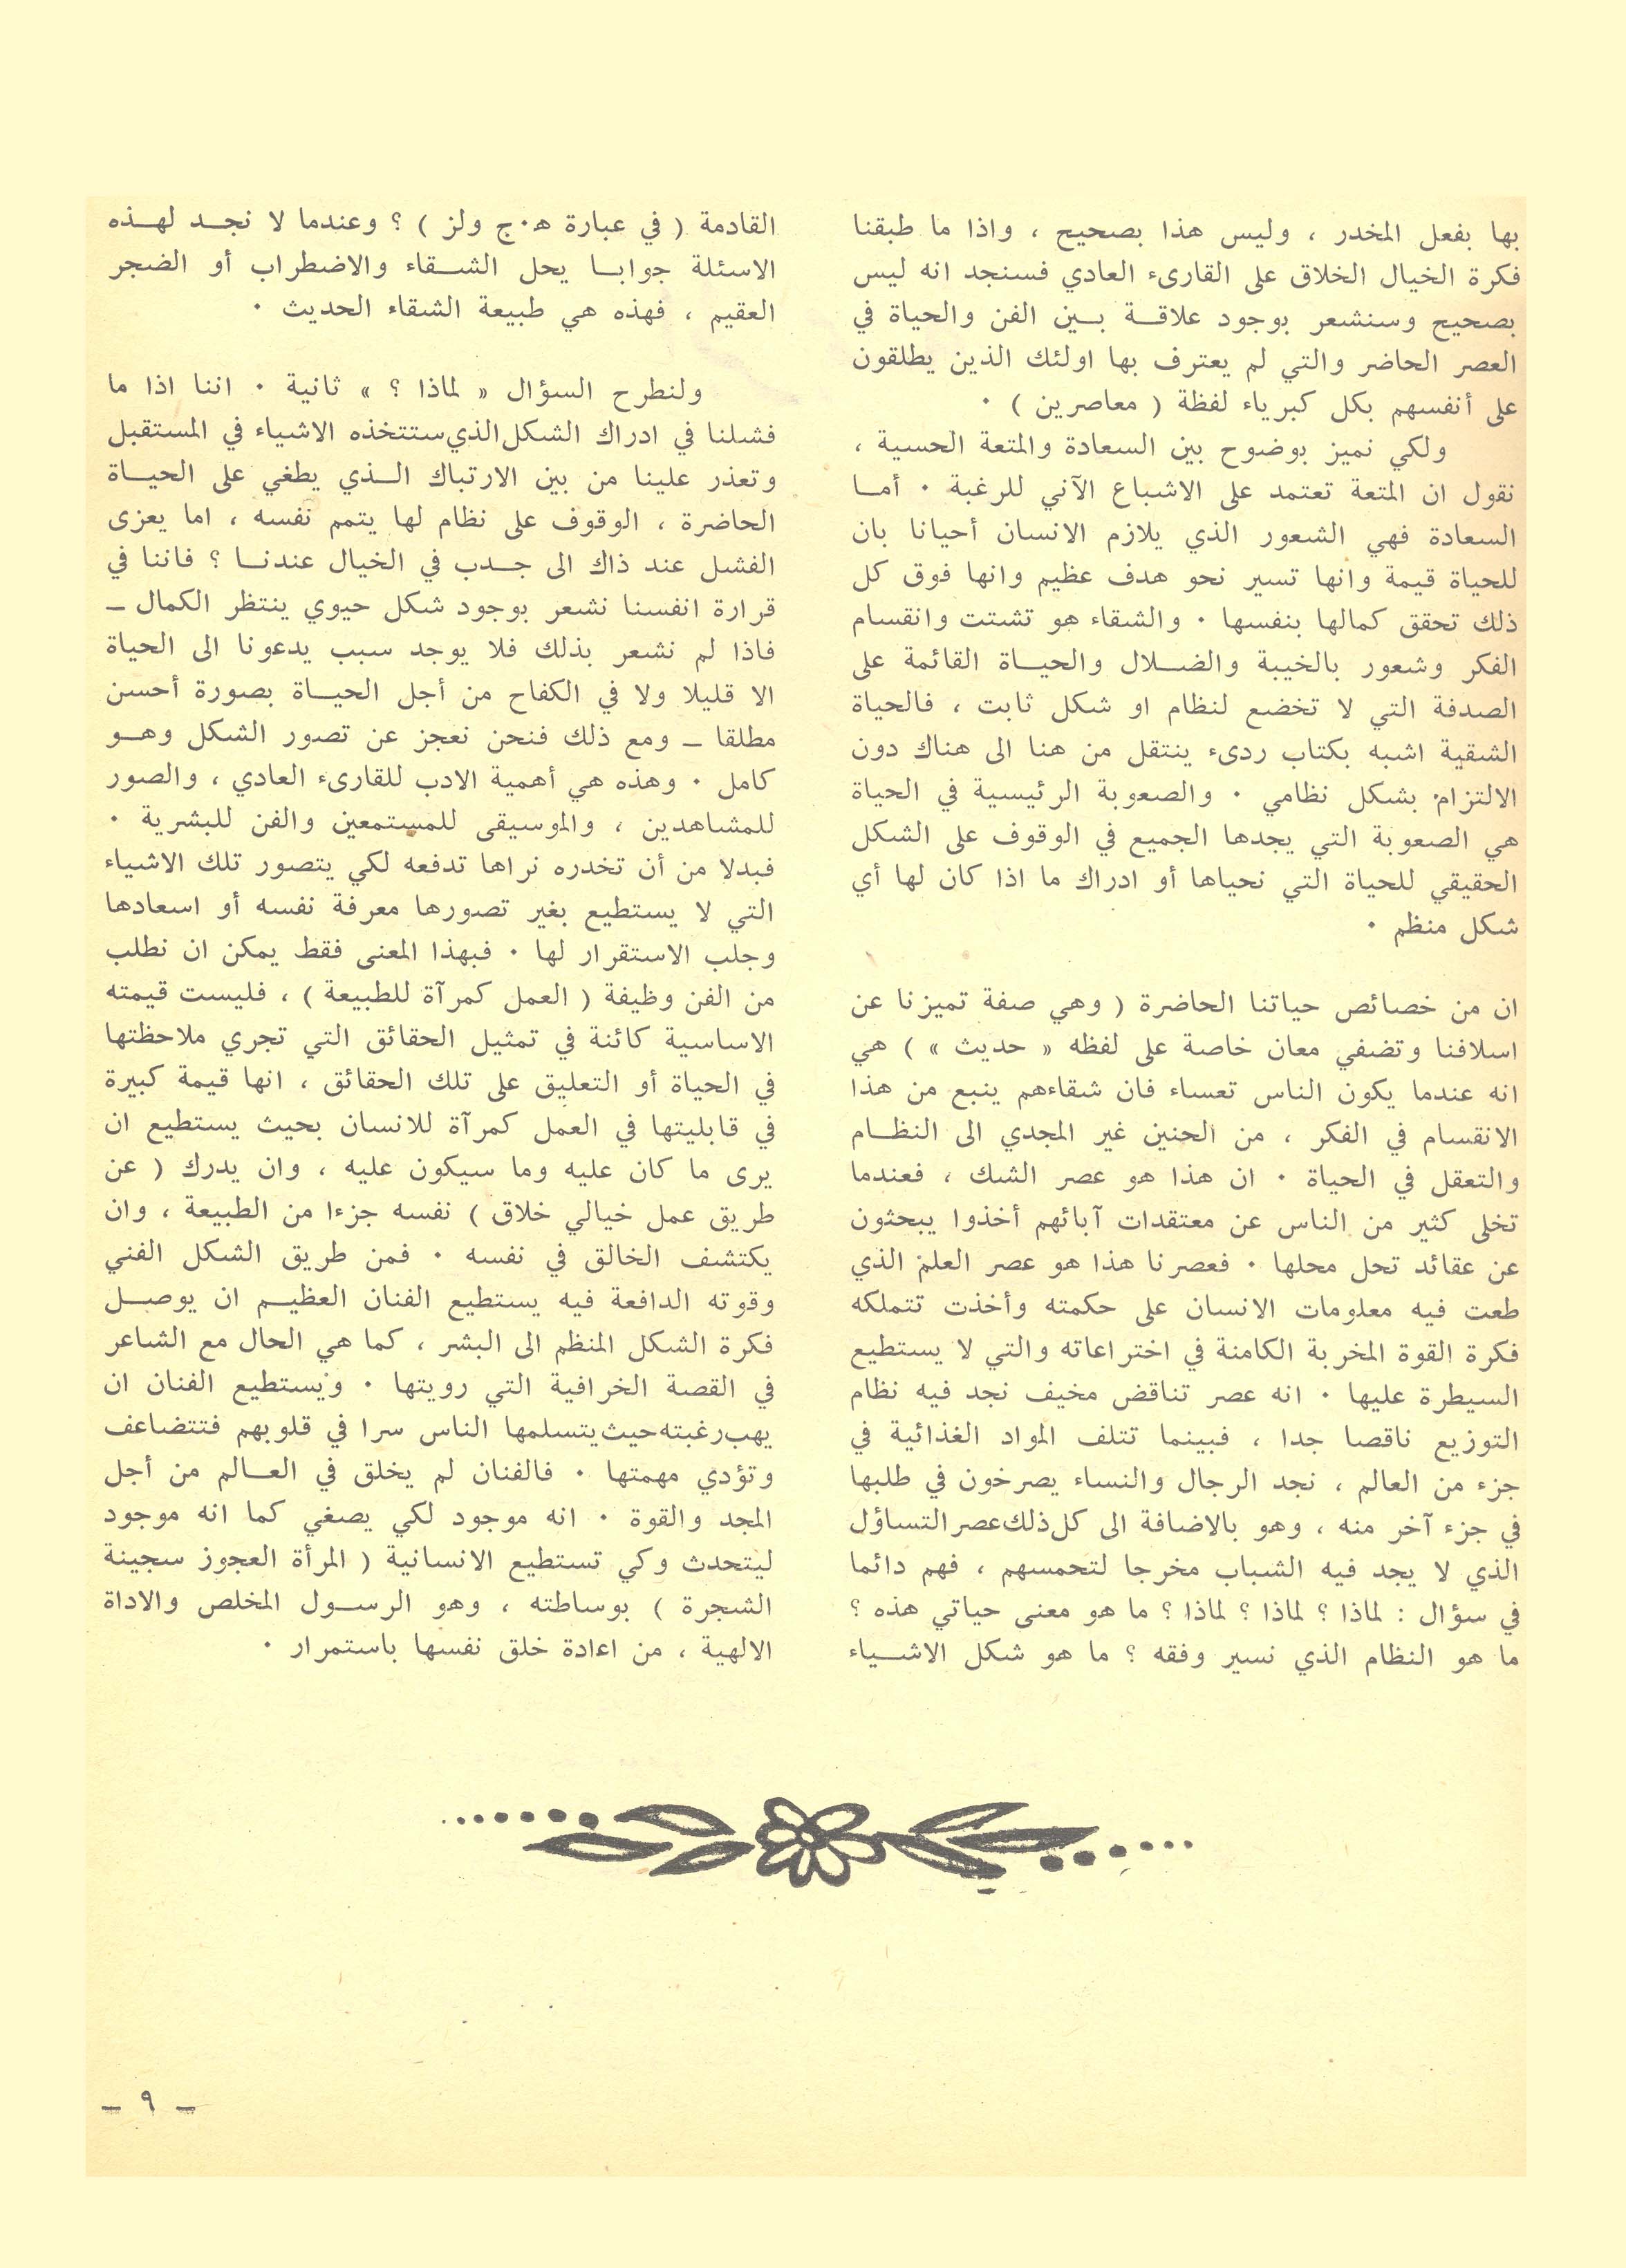 بها بفعل المخدر ، وليس هذا بصحيح ، واذا ما طبقنا
فكرة الخيال الخلاق على القارىء العادي فسنجد انه ليس
بصحيح وسنشعر بوجود علاقة بين الفن والحياة في
العصر الحاضر والتي لم يعترف بها اولئك الذين يطلقون
على أنفسهم بكل كبرياء لفظة ( معاصرين ) ٠
ولكي نميز بوضوح بين السعادة والمتعة الحسية ،
نقول ان المتعة تعتمد على الاشباع الآني للرغبة ٠ أما
السعادة فهي الشعور الذي يلازم الانسان أحيانا بان
للحياة قيمة وانها تسير نحو هدف عظيم وانها فوق كل
ذلك تحقق كمالها بنفسها ٠ والشقاء هو تشتت وانقسام
الفكر وشعور بالخيبة والضلال والحياة القائمة على
الصدفة التي لا تخضع لنظام او شكل ثابت ، فالحياة
الشقية اشبه بكتاب ردىء ينتقل من هنا الى هناك دون
الالتزام بشكل نظامي ٠ والصعوبة الرئيسية في الحياة
هي الصعوبة التي يجدها الجميع في الوقوف على الشكل
الحقيقي للحياة التي نحياها أو ادراك ما اذا كان لها أي
شكل منظم ٠
ان من خصائص حياتنا الحاضرة ( وهي صفة تميزنا عن
اسلافنا وتضفي معان خاصة على لفظه « حديث » ) هي
انه عندما يكون الناس تعساء فان شقاءهم ينبع من هذا
الانقسام في الفكر ، من الحنين غير المجدي الى النظام
والتعقل في الحياة ٠ ان هذا هو عصر الشك ، فعندما
تخلى كثير من الناس عن معتقدات آبائهم أخذوا يبحثون
عن عقائد تحل محلها ٠ فعصرنا هذا هو عصر العلم الذي
طعت فيه معلومات الانسان على حكمته وأخذت تتملكه
فكرة القوة المخربة الكامنة في اختراعاته والتي لا يستطيع
السيطرة عليها ٠ انه عصر تناقض مخيف نجد فيه نظام
التوزيع ناقصا جدا ، فبينما تتلف المواد الغذائية في
جزء من العالم ، نجد الرجال والنساء يصرخون في طلبها
في جزء آخر منه ، وهو بالاضافة الى كل ذلك عصر التساؤل
الذي لا يجد فيه الشباب مخرجا لتحمسهم ، فهم دائما
في سؤال : لماذا ؟ لماذا ؟ لماذا ؟ ما هو معنى حياتي هذه ؟
ما هو النظام الذي نسير وفقه ؟ ما هو شكل الاشياء
القادمة ( في عبارة ه٠ج ولز ) ؟ وعندما لا نجد لهذه
الاسئلة جوابا يحل الشقاء والاضطراب أو الضجر
العقيم ، فهذه هي طبيعة الشقاء الحديث ٠
ولنطرح السؤال « لماذا ؟ » ثانية ٠ اننا اذا ما
فشلنا في ادراك الشكل الذي ستتخذه الاشياء في المستقبل
وتعذر علينا من بين الارتباك الذي يطغي على الحياة
الحاضرة ، الوقوف على نظام لها يتمم نفسه ، اما يعزى
الفشل عند ذاك الى جدب في الخيال عندنا ؟ فاننا في
قرارة انفسنا نشعر بوجود شكل حيوي ينتظر الكمال ــ
فاذا لم نشعر بذلك فلا يوجد سبب يدعونا الى الحياة
الا قليلا ولا في الكفاح من أجل الحياة بصورة أحسن
مطلقا ــ ومع ذلك فنحن نعجز عن تصور الشكل وهو
كامل ٠ وهذه هي أهمية الادب للقارىء العادي ، والصور
للمشاهدين ، والموسيقى للمستمعين والفن للبشرية ٠
فبدلا من أن تخدره نراها تدفعه لكي يتصور تلك الاشياء
التي لا يستطيع بغير تصورها معرفة نفسه أو اسعادها
وجلب الاستقرار لها ٠ فبهذا المعنى فقط يمكن ان نطلب
من الفن وظيفة ( العمل كمرآة للطبيعة ) ، فليست قيمته
الاساسية كائنة في تمثيل الحقائق التي تجري ملاحظتها
في الحياة أو التعليق على تلك الحقائق ، انها قيمة كبيرة
في قابليتها في العمل كمرآة للانسان بحيث يستطيع ان
يرى ما كان عليه وما سيكون عليه ، وان يدرك ( عن
طريق عمل خيالي خلاق ) نفسه جزءا من الطبيعة ، وان
يكتشف الخالق في نفسه ٠ فمن طريق الشكل الفني
وقوته الدافعة فيه يستطيع الفنان العظيم ان يوصل
فكرة الشكل المنظم الى البشر ، كما هي الحال مع الشاعر
في القصة الخرافية التي رويتها ٠ ويستطيع الفنان ان
يهب رغبته حيث يتسلمها الناس سرا في قلوبهم فتتضاعف
وتؤدي مهمتها ٠ فالفنان لم يخلق في العالم من أجل
المجد والقوة ٠ انه موجود لكي يصغي كما انه موجود
ليتحدث وكي تستطيع الانسانية ( المرأة العجوز سجينة
الشجرة ) بوساطته ، وهو الرسول المخلص والاداة
الالهية ، من اعادة خلق نفسها باستمرار ٠
ــ ٩ ــ